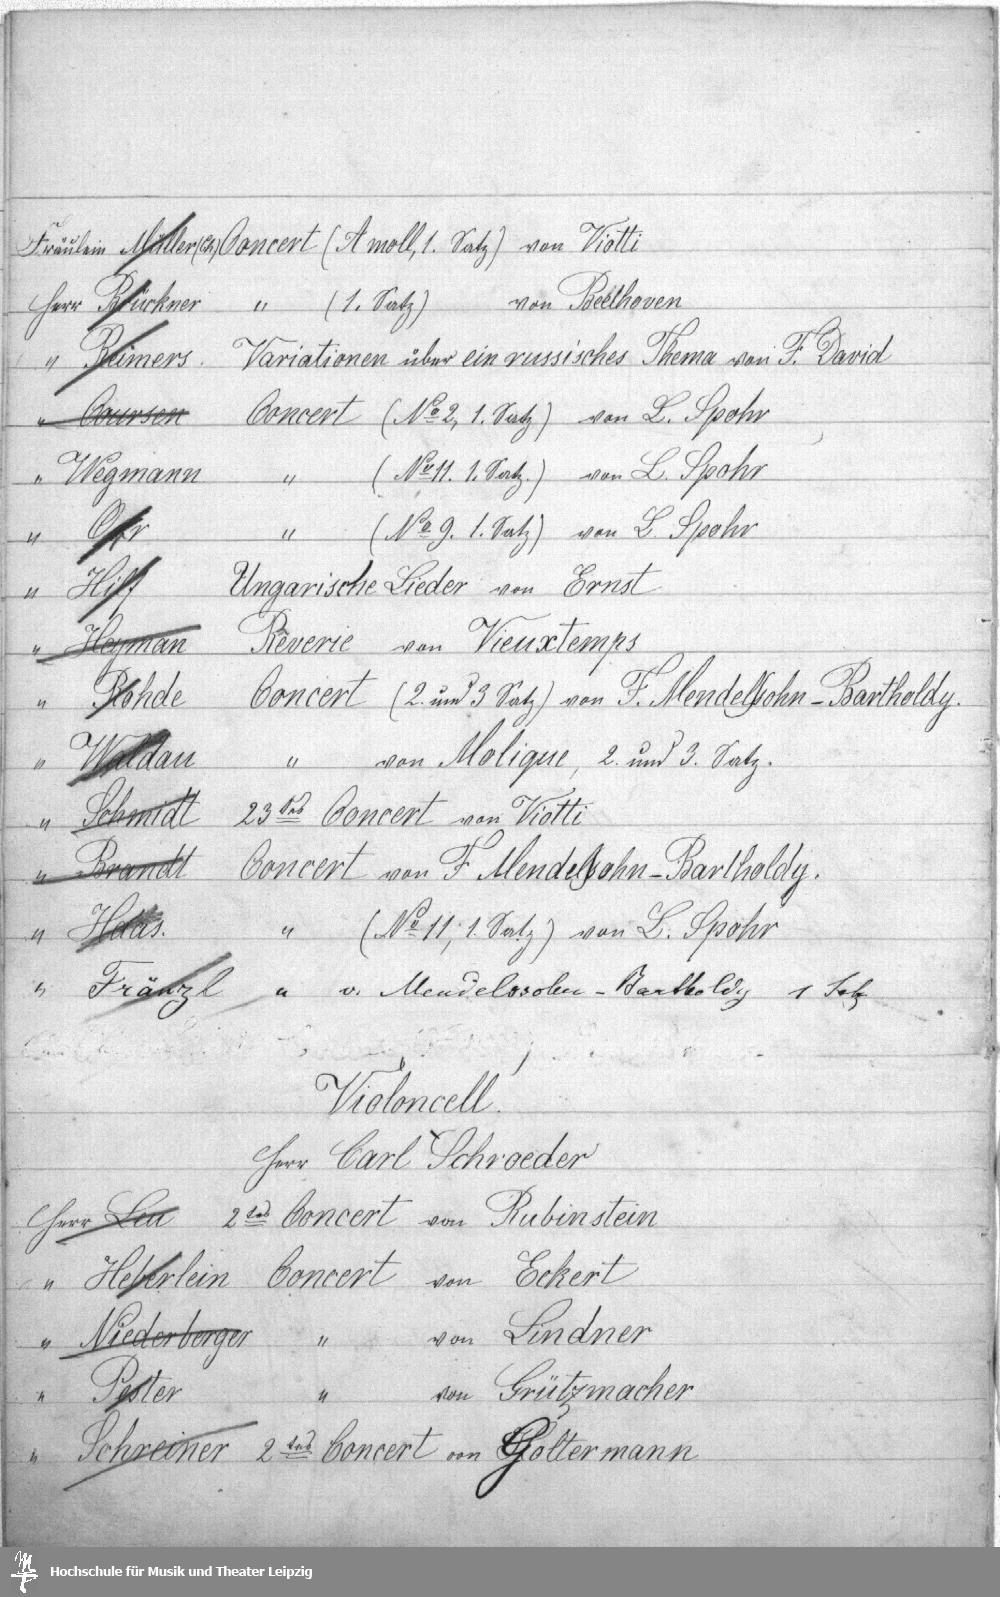 Fräulein Müller (Ch) Concert (A moll, 1. Satz) von Viotti
Herr Brückner " (1. Satz) von Beethoven
" Reimers. Variationen über ein russisches Thema von F. David
" Coursen Concert (No 2, 1. Satz) von L. Spohr
" Wegmann " (No 11. 1. Satz.) von L. Spohr
" " (No 9. 1. Satz) von L. Spohr
" Hilf Ungarische Lieder von Ernst
" Heyman Rêverie von Vieuxtemps
" Rohde Concert (2. und 3 Satz) von F. Mendelssohn-Bartholdy.
" Waldau " von Molique, 2. und 3. Satz.
" Schmidt 23tes Concert von Viotti
" Brandt Concert von F Mendelssohn-Bartholdy.
" Haas. " (No 11, 1. Satz) von L. Spohr
" Fränzl " v. Mendelssohn-Bartholdy 1 Satz
Violoncell.
Herr Carl Schroeder
Herr Leu 2tes Concert von Rubinstein
" Heberlein Concert von Eckert
" Niederberger " von Lindner
" Pester " von Grützmacher
" Schreiner 2tes Concert von Goltermann
Hochschule für Musik und Theater Leipzig